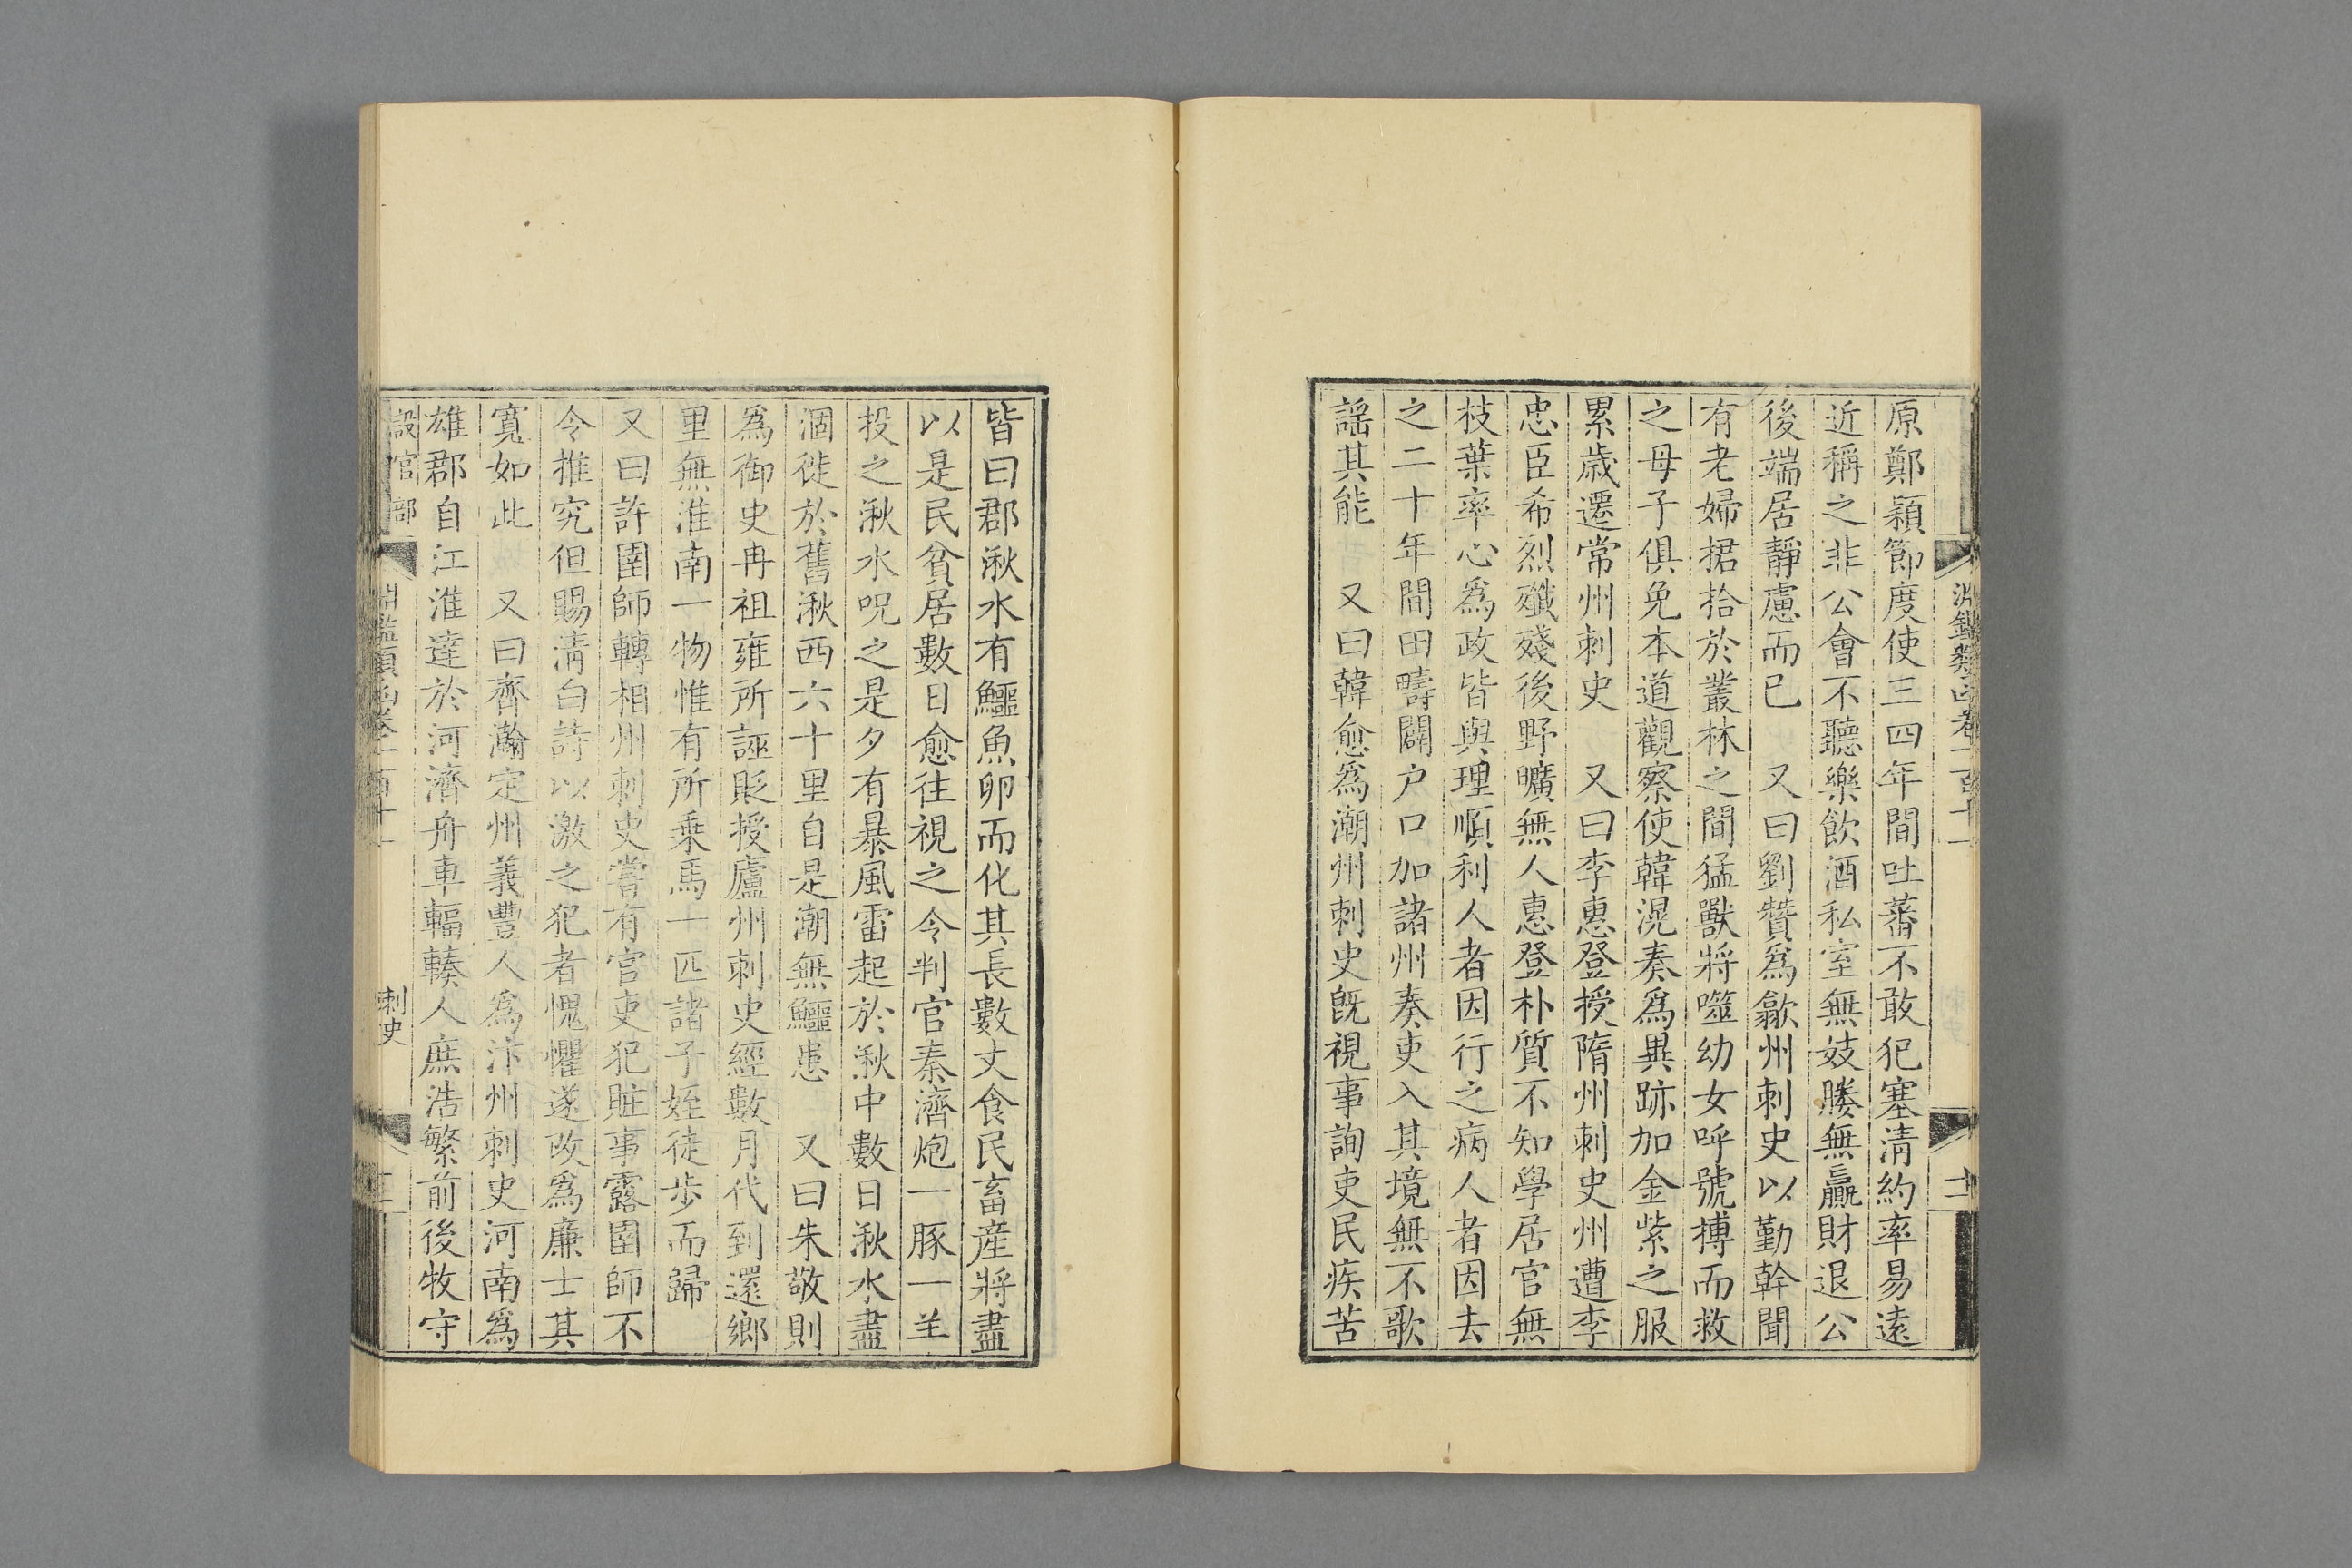 淵鑑類函卷一百十一
十一
原鄭潁節度使三四年間吐蕃不敢犯塞淸約率易遠
近稱之非公會不聽樂飲酒私室無妓媵無贏財退公
後端居靜慮而已　又曰劉贊爲歙州刺史以勤幹聞
有老婦捃拾於叢林之間猛獸將噬幼女呼號搏而救
之母子俱免本道觀察使韓滉奏爲異跡加金紫之服
累歲遷常州刺史　又曰李惠登授隋州刺史州遭李
忠臣希烈殲殘後野曠無人惠登朴質不知學居官無
枝葉率心爲政皆與理順利人者因行之病人者因去
之二十年間田疇闢户口加諸州奏吏入其境無不歌
謠其能　又曰韓愈爲潮州刺史旣視事詢吏民疾苦
皆曰郡湫水有鱷魚卵而化其長數丈食民畜産將盡
以是民貧居數日愈往視之令判官秦濟炮一豚一羊
投之湫水呪之是夕有暴風雷起於湫中數日湫水盡
涸徙於舊湫西六十里自是潮無鱷患　又曰朱敬則
爲御史冉祖雍所誣貶授廬州刺史經數月代到還鄉
里無淮南一物惟有所乗馬一匹諸子姪徒步而歸
又曰許圉師轉相州刺史嘗有官吏犯贓事露圉師不
令推究但賜淸白詩以激之犯者愧懼遂改爲廉士其
寬如此　又曰齊澣定州義豐人爲汴州刺史河南爲
雄郡自江淮達於河濟舟車輻輳人庶浩繁前後牧守
設官部
淵鑑類函卷一百十一
刺史